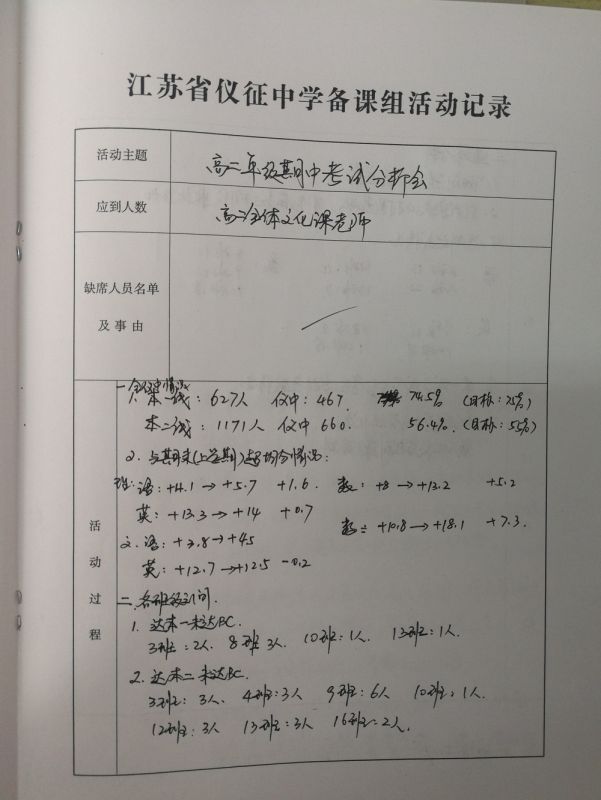 江苏省仪征中学备课组活动记录
活动主题
高二年级期中考试分析会
应到人数
高二全体文化课老师
缺席人员名单
及事由
活动过程
一
1. 本一线：627人 仪中：467. 74.5% (目标：75%)
本二线：1171人 仪中 660. 56.4%. (目标：55%)
2. 与期末(上学期)均分情况：
理：语：+4.1→+5.7 +1.6. 数：+8→+13.2 +5.2
英：+13.3→+14 +0.7 数：+10.8→+18.1 +7.3.
文：语：+3.8→+45
英：+12.7→+12.5 -0.2
二、各班级之间.
1. 达本一未达BC.
3班：2人. 8班 3人. 10班：1人. 13班：1人.
2. 达本二未达BC.
3班：3人. 4班：3人 9班：6人 10班：1人.
12班：3人 13班：3人 16班：2人.